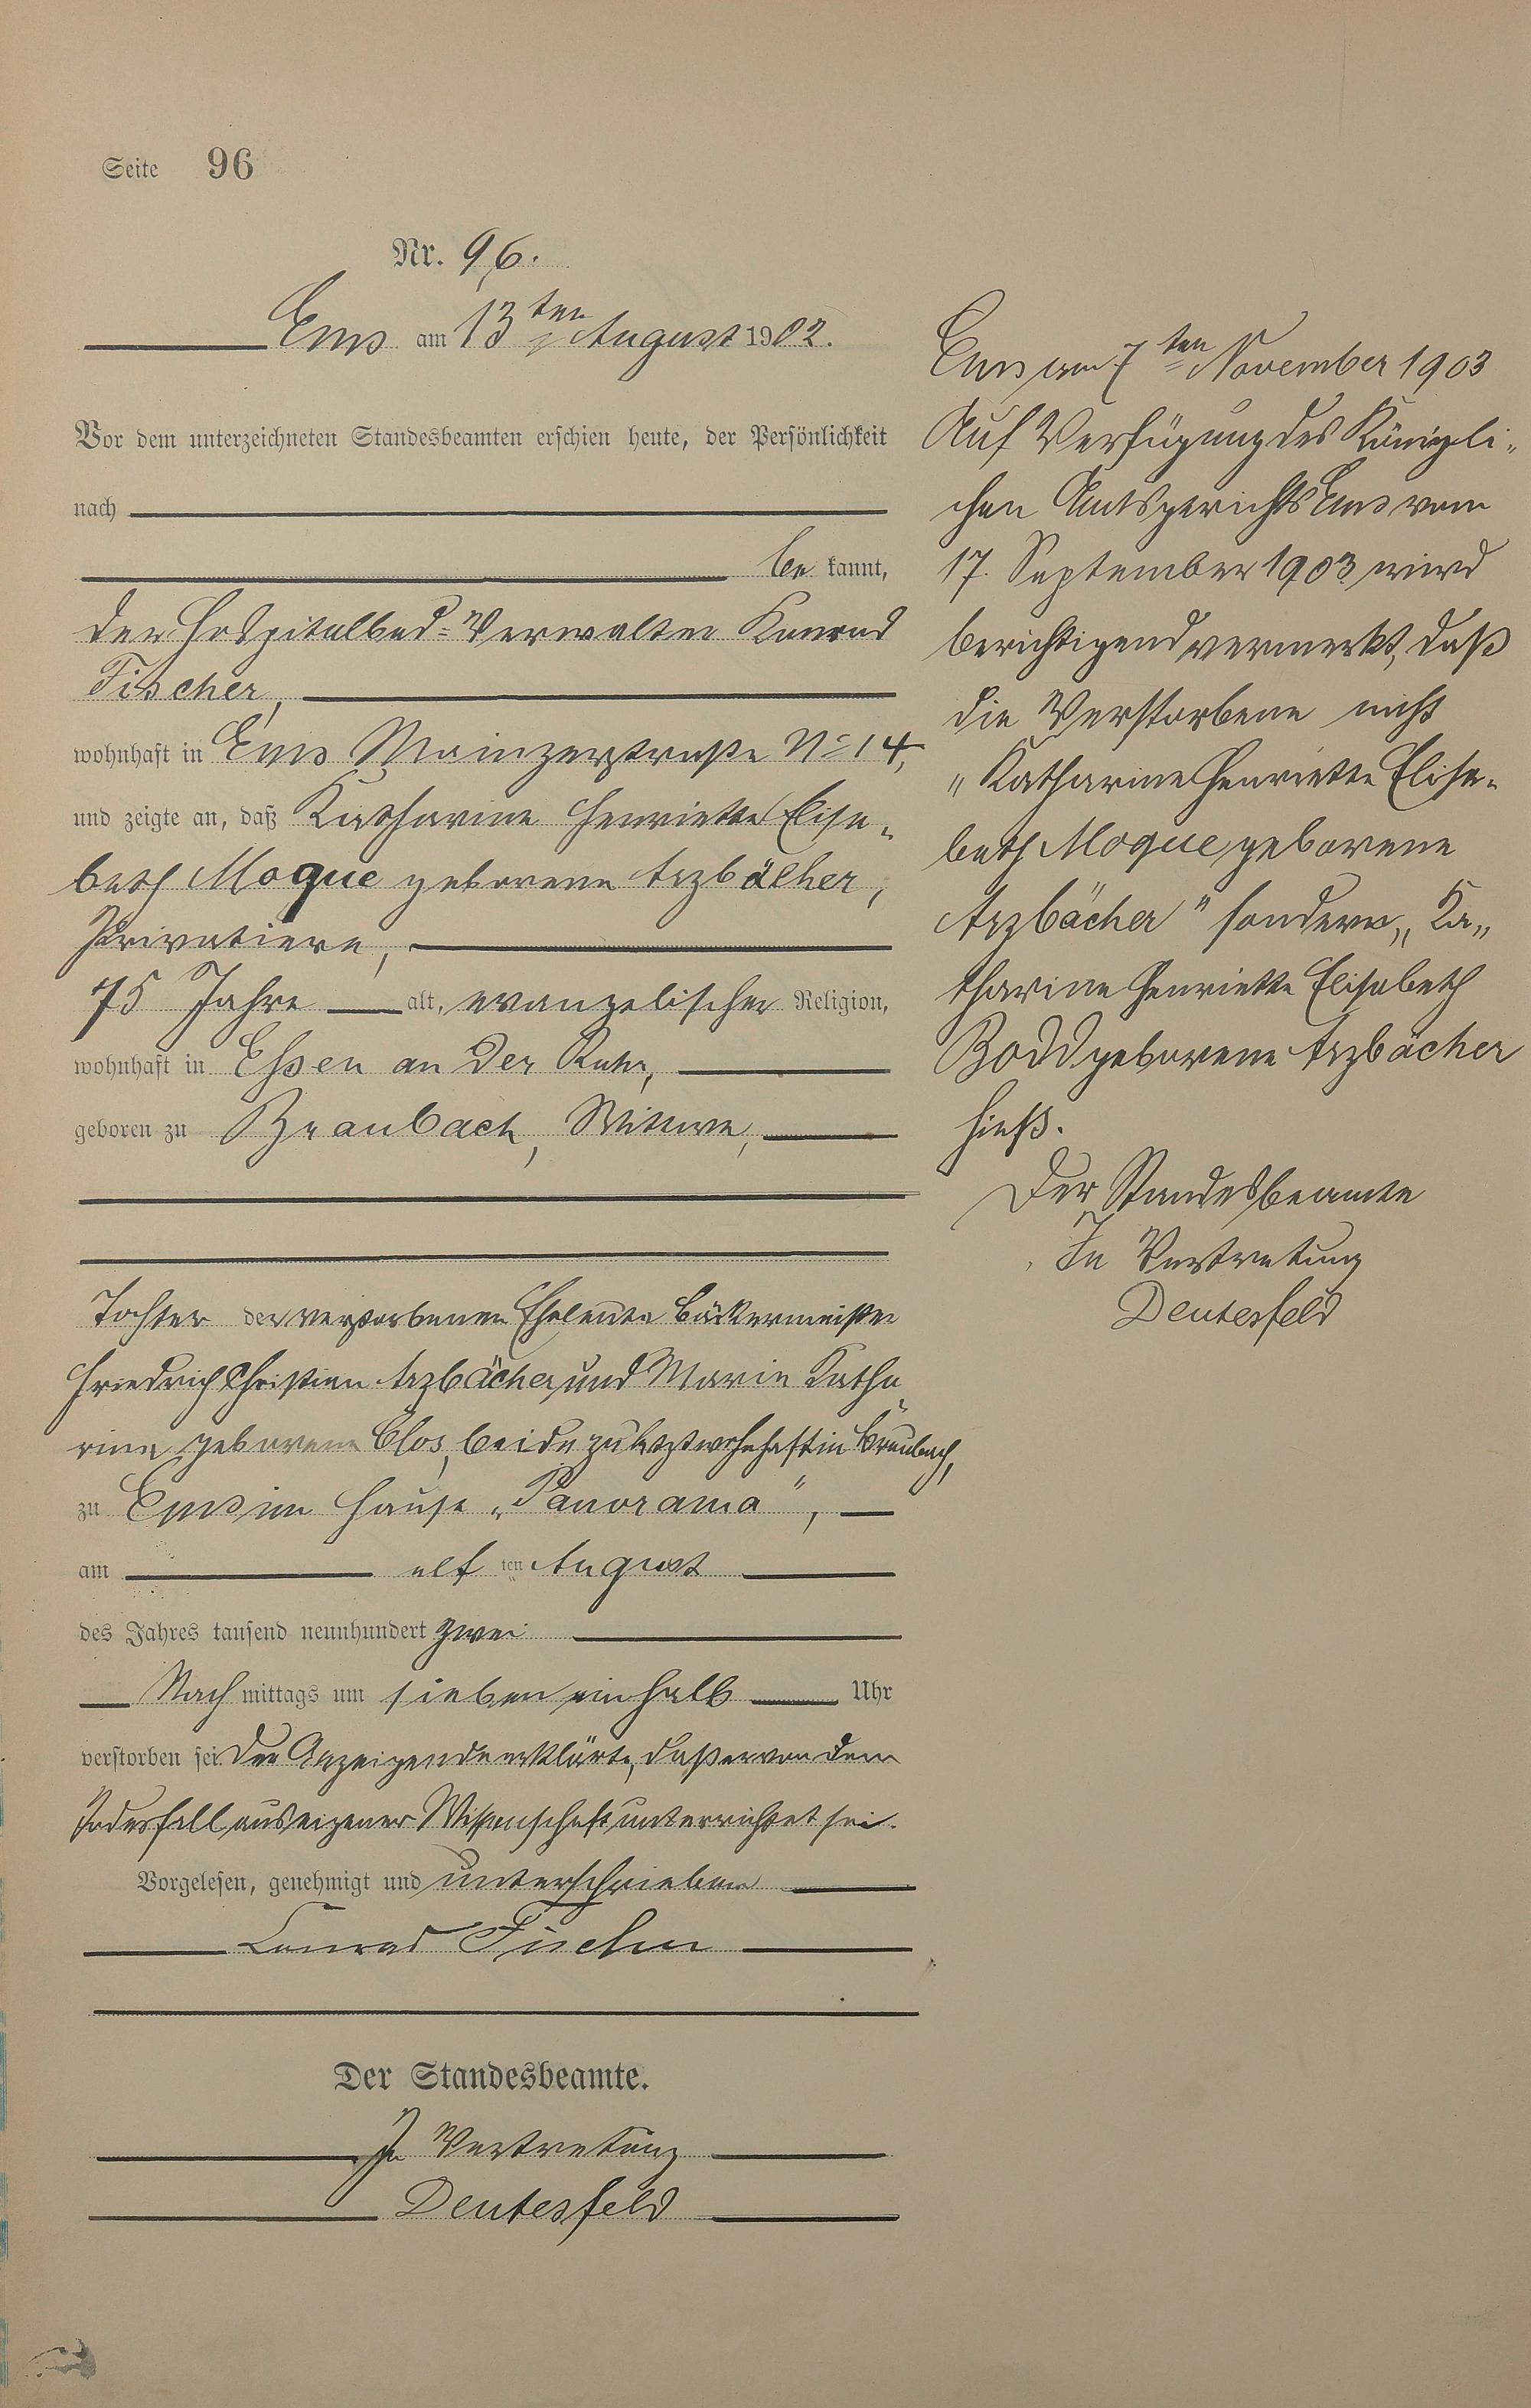 Seite 96
Nr. 96.
Ems am 13ten August 1902.
Vor dem unterzeichneten Standesbeamten erschien heute, der Persönlichkeit
nach
be kannt,
der Hospitalbad-Verwalter Konrad
Fischer,
wohnhaft in Ems Mainzerstraße No 14,
und zeigte an, daß Katharine Henriette Elisa-
beth Moque geborene Arzbächer,
Privatiere,
75 Jahre alt, evangelischer Religion,
wohnhaft in Essen an der Ruhr,
geboren zu Braubach, Wittwe,
Tochter der verstorbenen Eheleute Bäckermeister
Friedrich Christian Arzbächer und Marie Katha-
rina geborene Clos, beide zuletzt wohnhaft in Braubach,
zu Ems im Hause „Panorama",
am elf ten August
des Jahres tausend neunhundert zwei
Nach mittags um sieben einhalb Uhr
verstorben sei. Der Anzeigende erklärte, daß er von dem
Todesfall aus eigener Wissenschaft unterrichtet sei.
Vorgelesen, genehmigt und unterschrieben
Conrad Fischer
Der Standesbeamte.
In Vertretung
Deutesfeld
Ems am 7ten November 1903
Auf Verfügung des Königli-
chen Amtsgerichts Ems vom
17. September 1903 wird
berichtigend vermerkt, daß
die Verstorbene nicht
„Katharine Henriette Elisa-
beth Moque geborene
Arzbächer" sondern „Ka-
tharine Henriette Elisabeth
Bodd geborene Arzbächer
hieß.
Der Standesbeamte
In Vertretung
Deutesfeld